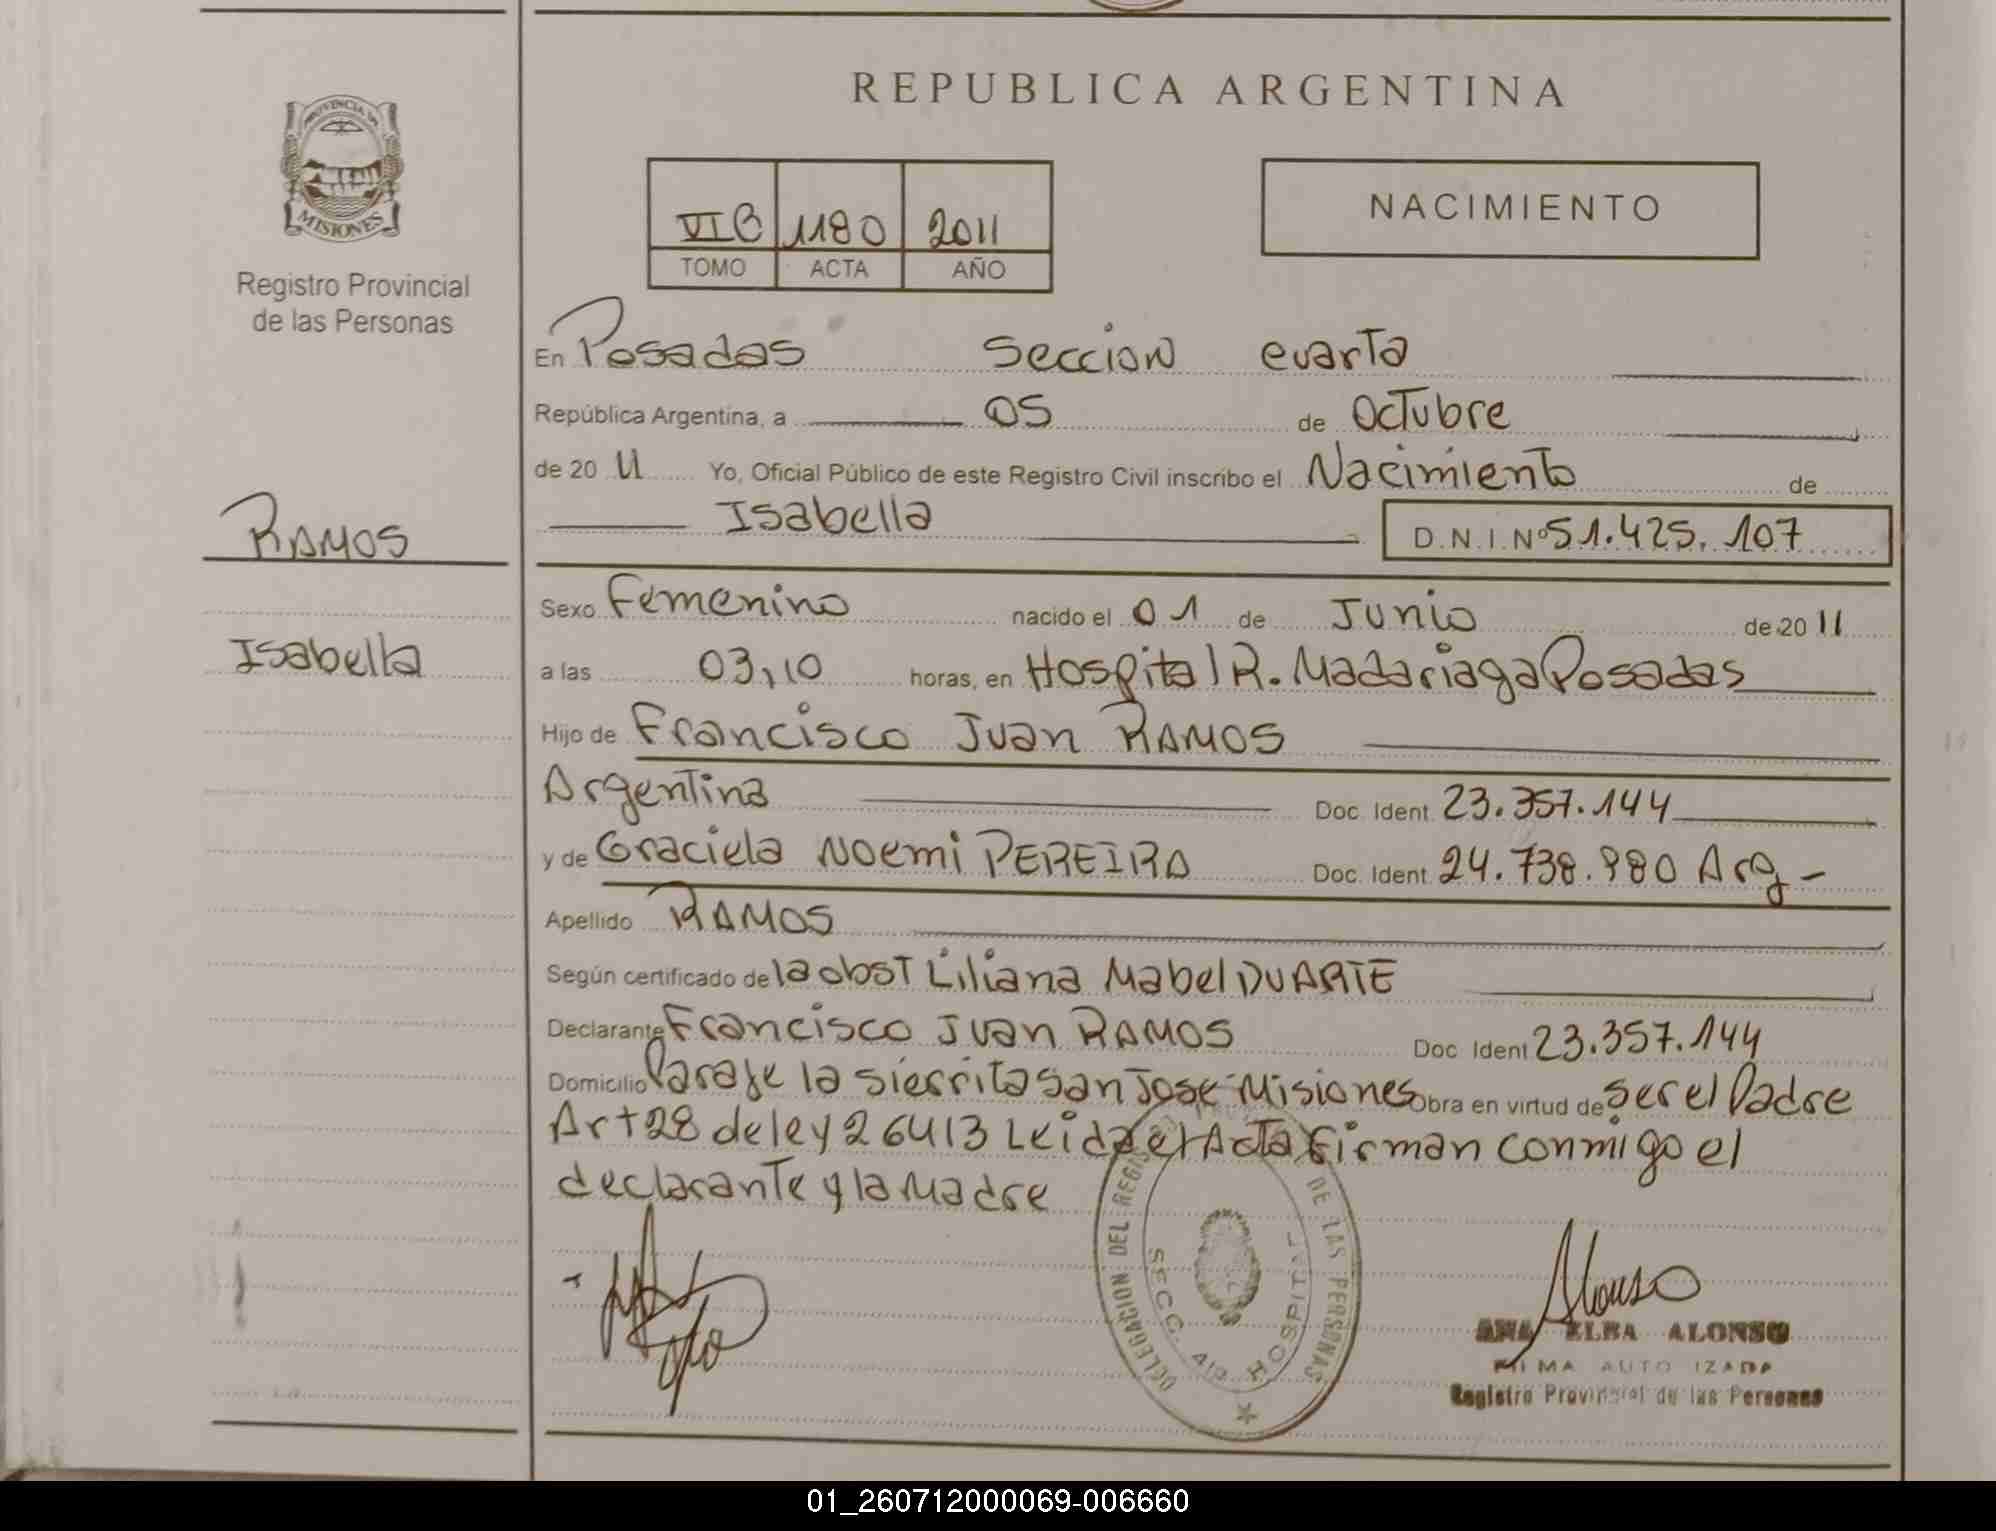 REPUBLICA ARGENTINA
PROVINCIA DE
MISIONES
Registro Provincial
de las Personas
VI B 1180 2011
TOMO ACTA AÑO
NACIMIENTO
En Posadas Seccion cuarta
República Argentina, a 05 de Octubre
de 20 11 Yo, Oficial Público de este Registro Civil inscribo el Nacimiento de
Isabella D.N.I. Nº 51.425.107
RAMOS
Isabella
Sexo Femenino nacido el 01 de Junio de 20 11
a las 03,10 horas, en Hospital R. Madariaga Posadas
Hijo de Francisco Juan RAMOS
Argentina Doc. Ident. 23.357.144
y de Graciela Noemi PEREIRA Doc. Ident. 24.738.980 Arg -
Apellido RAMOS
Según certificado de la obst Liliana Mabel DUARTE
Declarante Francisco Juan RAMOS Doc Ident 23.357.144
Domicilio Paraje la sierrita San Jose Misiones Obra en virtud de ser el Padre
Art 28 de ley 26413 Leida el Acta firman conmigo el
declarante y la Madre
DELEGACION DEL REGIS DE LAS PERSONAS
SECC. 4ta HOSPITAL
Alonso
ANA ELBA ALONSO
FIRMA AUTORIZADA
Registro Provincial de las Personas
01_260712000069-006660